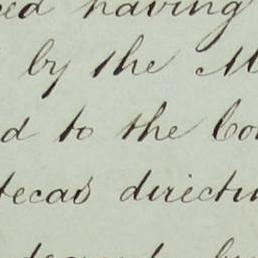 ed having
by the M
d to the Con
tecas directi